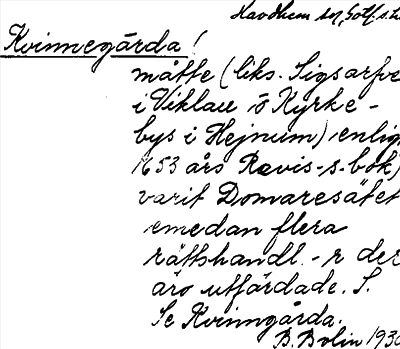 Havdhem sn, Gotl. s. hd
Kvinnegårda!
måtte (liks. Sigsarfve
i Viklau o Kyrke-
bys i Hejnum) enligt
1653 års Ravis-s-bok)
varit Domaresätet
emedan flera
rättshandl. -r der
äro utfärdade. S.
Se Kvinngårda.
B. Bolin 1930